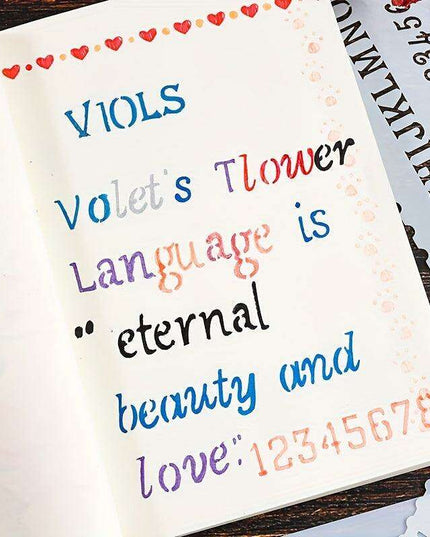 VIOLS
Volet's Tlower
Language is
" eternal
beauty and
love": 12345678
HIJKLMNO